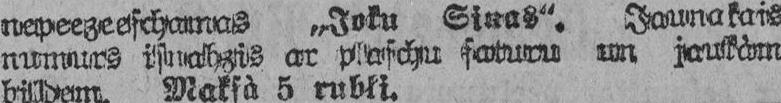 nepeezeeschamas „Joku Sinas“. Jaunakais
numurs isnahzis ar plaschu saturu un jaukàm
bildem. Maksà 5 rubli.